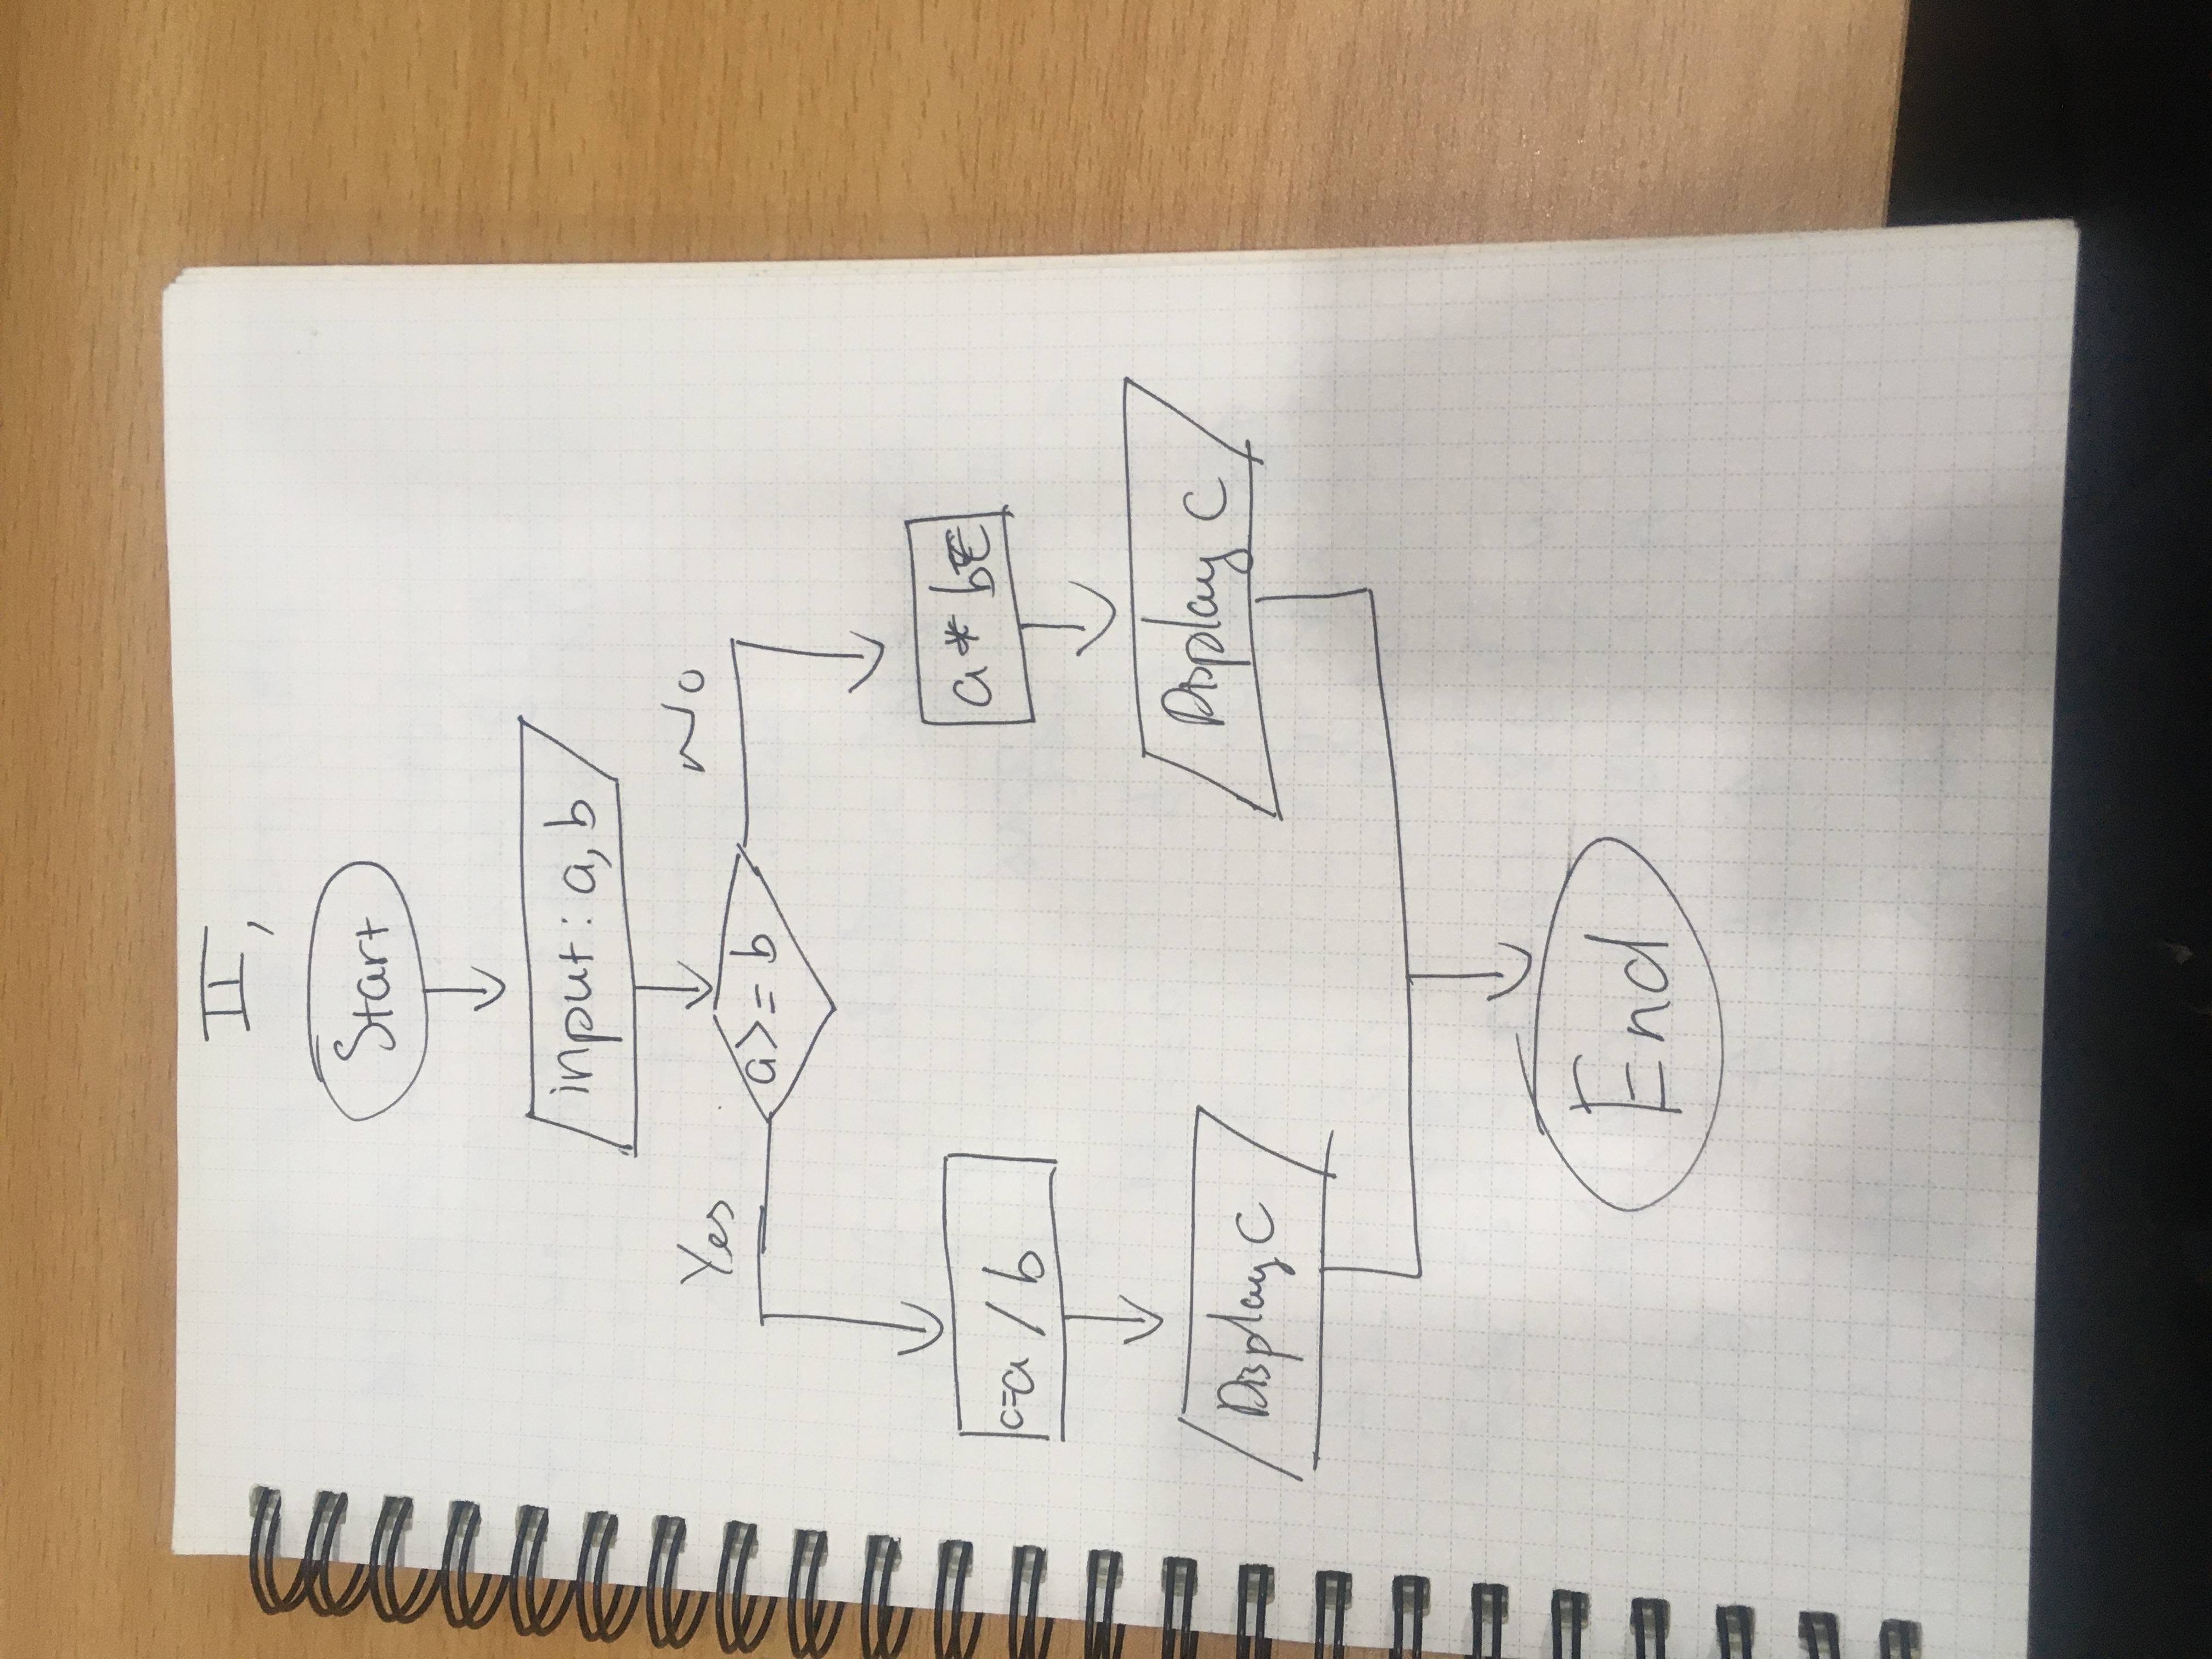 II,
Start
input: a, b
Yes
No
a>= b
c=a / b
a * b
Display C
Display C
End